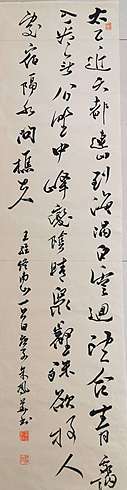 太乙近天都連山到海隅白雲迴望合青靄
入看無分野中峰變陰晴衆壑殊欲投人
處宿隔水問樵夫
王維終南山一首